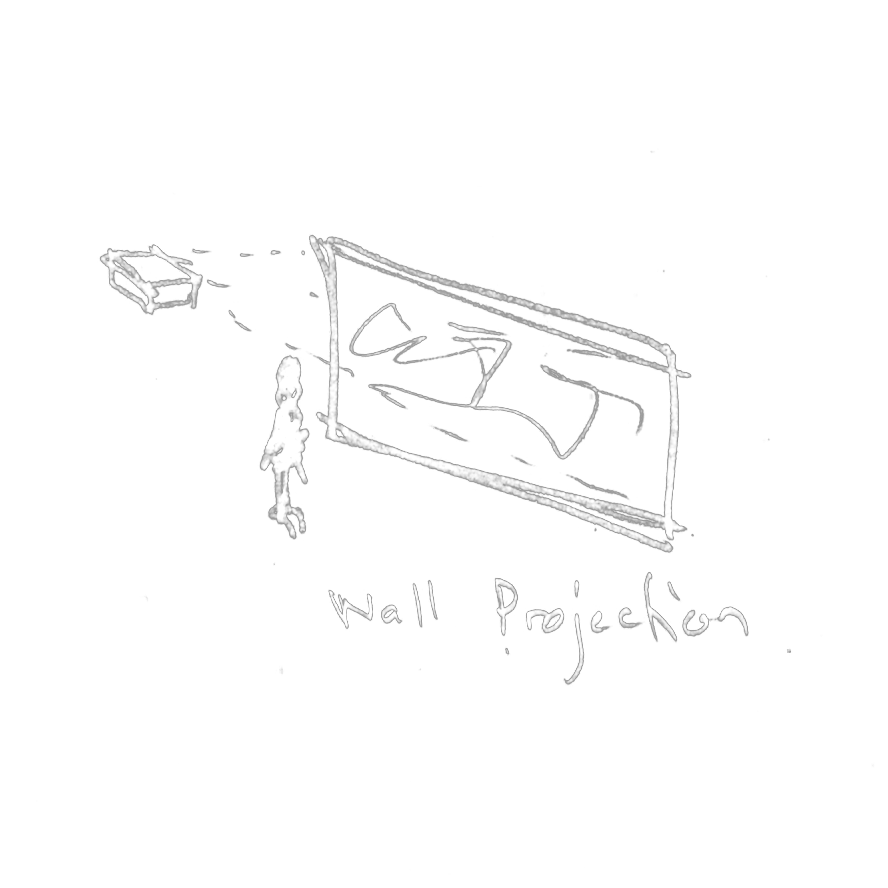 Wall Projection